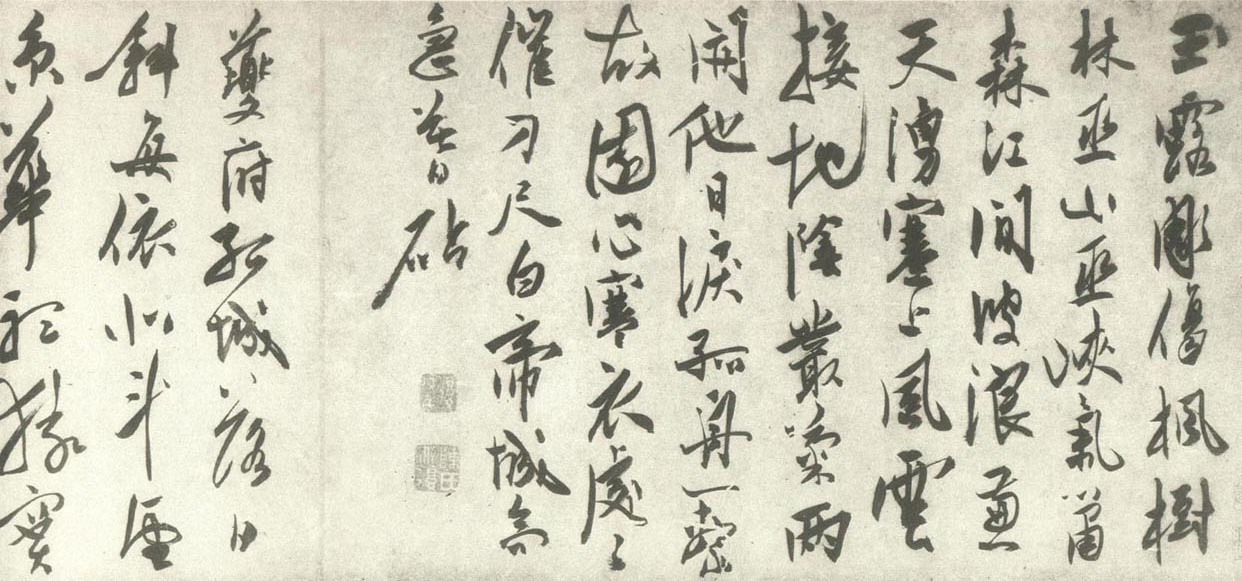 玉露彫傷楓樹
林巫山巫峽氣蕭
森江間波浪兼
天湧塞上風雲
接地陰叢菊兩
開他日淚孤舟一繫
故園心寒衣處〻
催刀尺白帝城高
急暮砧
夔府孤城落日
斜每依北斗望
京華聽猿實